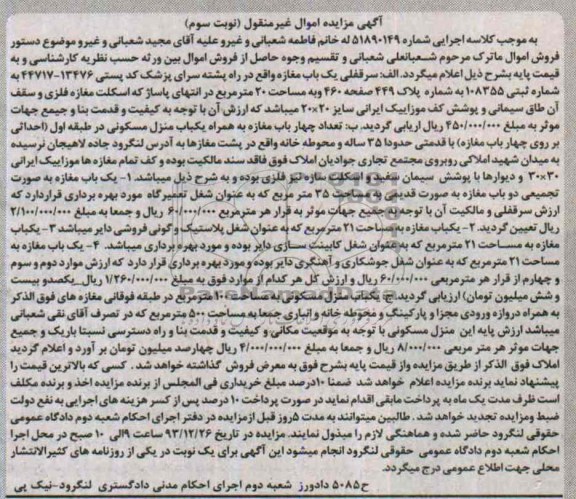 آگهی مزایده اموال غیرمنقول (نوبت سوم)
به موجب کلاسه اجرایی شماره ۵۱۸۹۰۱۴۹ له خانم فاطمه شعبانی و غیره علیه آقای مجید شعبانی و غیرو موضوع دستور
فروش اموال ماترک مرحوم شعبانعلی شعبانی و تقسیم وجوه حاصل از فروش اموال بین ورثه حسب نظریه کارشناسی و به
قیمت پایه بشرح ذیل اعلام میگردد. الف: سرقفلی یک باب مغازه واقع در راه پشته سرای پزشک کد پستی ۱۳۴۷۶-۴۴۷۱۷ به
شماره ثبتی ۱۰۸۳۵۵ به شماره پلاک ۴۴۹ صفحه ۴۶۰ وبه مساحت ۲۰ مترمربع در انتهای پاساژ که اسکلت مغازه فلزی و سقف
آن طاق سیمانی و پوشش کف موزاییک ایرانی سایز ۲۰×۲۰ میباشد که ارزش آن با توجه به کیفیت و قدمت بنا و جمیع جهات
موثر به مبلغ ۴۵۰/۰۰۰/۰۰۰ ریال ارزیابی گردید. ب: تعداد چهار باب مغازه به همراه یکباب منزل مسکونی در طبقه اول (احداثی
بر روی چهار باب مغازه) با قدمتی حدودا ۳۵ ساله و محوطه خانه واقع در پشت مغازها به آدرس لنگرود جاده لاهیجان نرسیده
به میدان شهید املاکی روبروی مجتمع تجاری جوادیان املاک فوق فاقد سند مالکیت بوده و کف تمام مغازه ها موزاییک ایرانی
۳۰×۳۰ و دیوارها با پوشش سیمان سفید و اسکلت سازه نیز فلزی بوده و به شرح ذیل میباشد. ۱- یک باب مغازه به صورت
تجمیعی دو باب مغازه به صورت قدیمی و به مساحت ۳۵ متر مربع که به عنوان شغل تعمیرگاه مورد بهره برداری قراردارد که
ارزش سرقفلی و مالکیت آن با توجه به جمیع جهات موثر به قرار هر مترمربع ۶۰/۰۰۰/۰۰۰ ریال و جمعا به مبلغ ۲/۱۰۰/۰۰۰/۰۰۰
ریال تعیین گردید. ۲- یکباب مغازه به مساحت ۲۱ مترمربع که به عنوان شغل پلاستیک و گونی فروشی دایر میباشد ۳- یکباب
مغازه به مساحت ۲۱ مترمربع که به عنوان شغل کابینت سازی دایر بوده و مورد بهره برداری میباشد. ۴- یک باب مغازه به
مساحت ۲۱ مترمربع که به عنوان شغل جوشکاری و آهنگری دایر بوده و مورد بهره برداری قرار دارد که ارزش موارد دوم و سوم
و چهارم از قرار هر مترمربعی ۶۰/۰۰۰/۰۰۰ ریال و ارزش کل هر کدام از موارد فوق به مبلغ ۱/۲۶۰/۰۰۰/۰۰۰ ریال_یکصدو بیست
و شش میلیون تومان) ارزیابی گردید. ج: یکباب منزل مسکونی به مساحت ۱۰۰ مترمربع در طبقه فوقانی مغازه های فوق الذکر
به همراه دروازه ورودی مجزا و پارکینگ و محوطه خانه و انباری جمعا به مساحت ۵۰۰ مترمربع که در تصرف آقای نقی شعبانی
میباشد ارزش پایه این منزل مسکونی با توجه به موقعیت مکانی و کیفیت و قدمت بنا و راه دسترسی نسبتا باریک و جمیع
جهات موثر هر متر مربعی ۸/۰۰۰/۰۰۰ ریال و جمعا به مبلغ ۴/۰۰۰/۰۰۰/۰۰۰ ریال چهارصد میلیون تومان بر آورد و اعلام گردید
املاک فوق الذکر از طریق مزایده واز قیمت پایه بشرح فوق به معرض فروش گذاشته خواهد شد. کسی که بالاترین قیمت را
پیشنهاد نماید برنده مزایده اعلام خواهد شد ضمنا ۱۰درصد مبلغ خریداری فی المجلس از برنده مزایده اخذ و برنده مکلف
است ظرف مدت یک ماه به پرداخت مابقی اقدام نماید در صورت پرداخت ۱۰ درصد پس از کسر هزینه های اجرایی به نفع دولت
ضبط ومزایده تجدید خواهد شد. طالبین میتوانند به مدت ۵روز قبل ازمزایده در دفتر اجرای احکام شعبه دوم دادگاه عمومی
حقوقی لنگرود حاضر شده و هماهنگی لازم را مبذول نمایند. مزایده در تاریخ ۹۳/۱۲/۲۶ ساعت ۹الی ۱۰ صبح در محل اجرا
احکام شعبه دوم دادگاه عمومی حقوقی لنگرود انجام میشود این آگهی برای یک نوبت در یکی از روزنامه های کثیرالانتشار
محلی جهت اطلاع عمومی درج میگردد.
ح۵۰۸۵ دادورز شعبه دوم اجرای احکام مدنی دادگستری لنگرود-نیک پی